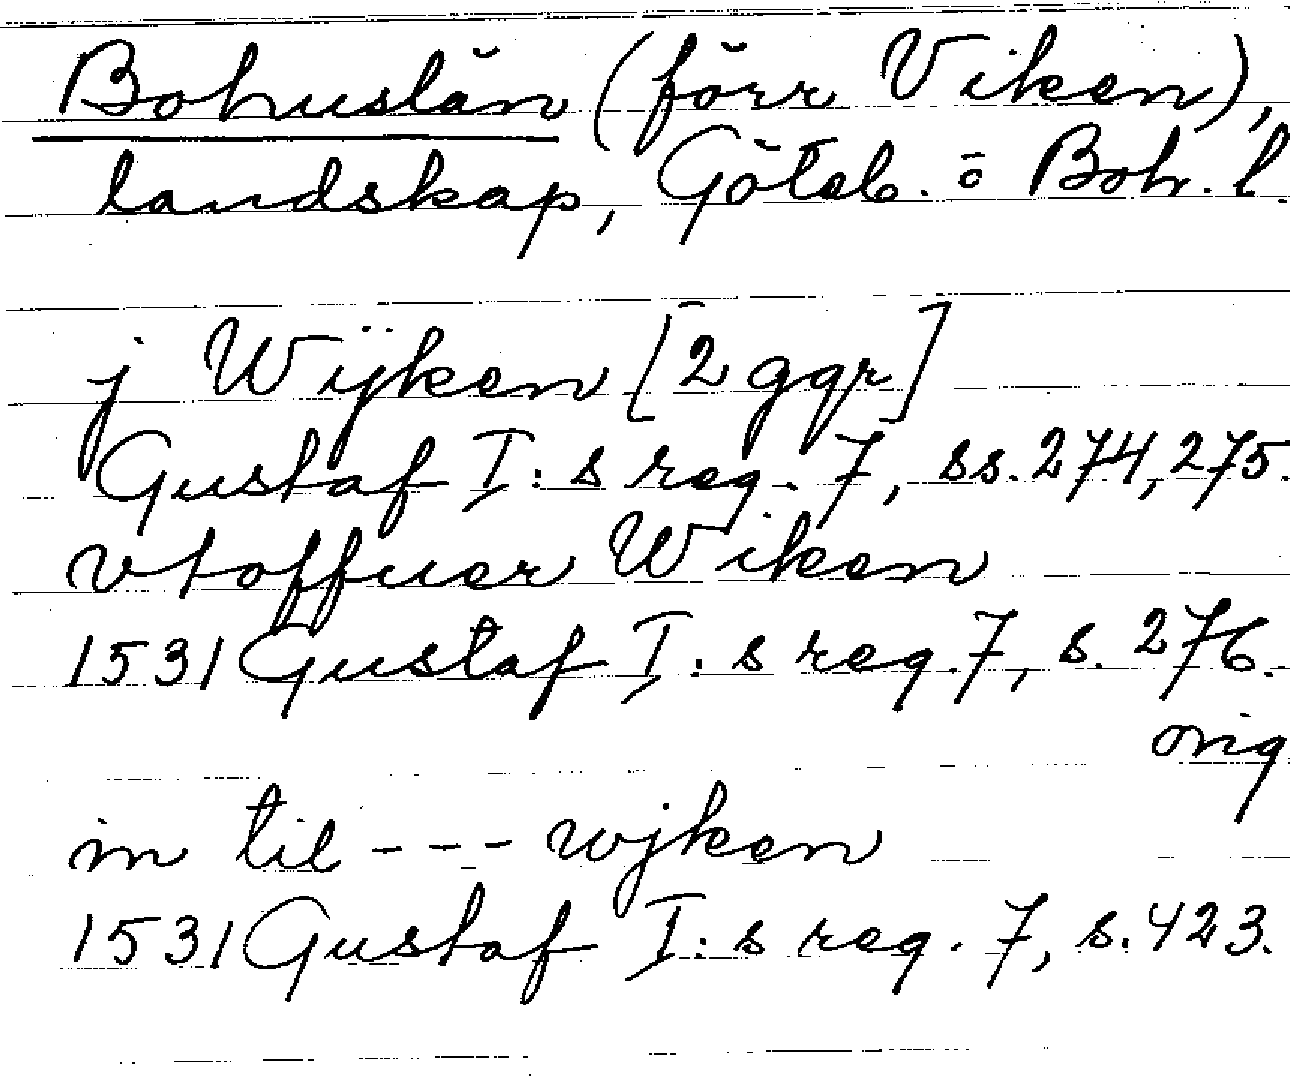 Bohuslän (förr Viken),
landskap, Göteb. o Boh. l.
j Wijken [2 ggr]
Gustaf I:s reg. 7, ss. 274, 275.
vtoffuer Wiken
1531 Gustaf I:s reg. 7, s. 276.
orig
in til --- wjken
1531 Gustaf I:s reg. 7, s. 423.